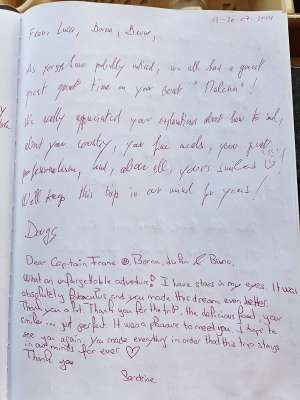 Franc, Luca, Borna, Bruno,
As you have probably noticed, we all had a great
great great time on your boat "Malena"!
We really appreciated your explanations about how to sail,
about your country, your fine meals, your great
professionalism, and, above all, yours smiles!
We'll keep this trip in our mind for years!
Dear Captain Frane, Borna, Luka & Bruno.
What an unforgettable adventure! I have stars in my eyes. It was
absolutely fabuculus and you made this dream even better.
Thank you a lot. Thank you for the trip, the delicious food, your
smiles... just perfect. It was a pleasure to meet you. I hope to
see you again. You made everything in order that this trip stays
in our minds for ever ♡
Thank you
Sandrine